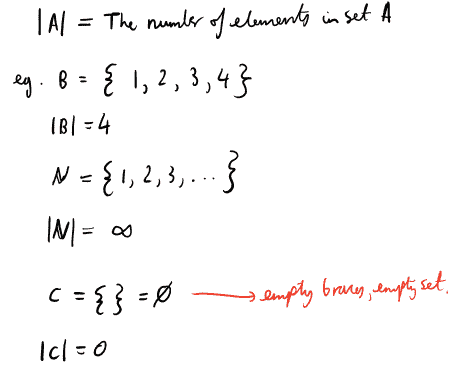 |A| = The number of elements in set A
eg. B = { 1, 2, 3, 4 }
|B| = 4
N = { 1, 2, 3, ... }
|N| = ∞
C = { } = Ø → empty braces, empty set.
|C| = 0